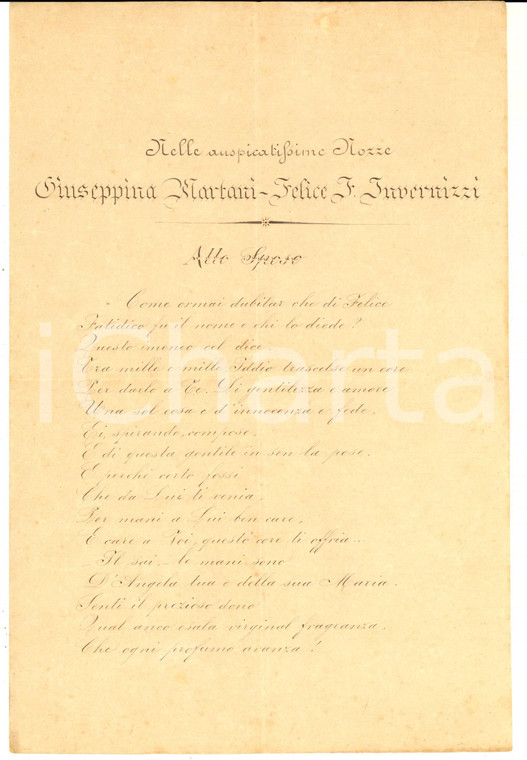 Nelle auspicatissime Nozze
Giuseppina Martani - Felice F. Invernizzi
Allo Sposo
Come ormai dubitar che di Felice
Fatidico fu il nome e chi lo diede?
Questo imeneo cel dice.
Era mille e mille Iddio trascelse un core
Per darlo a Te. Di gentilezza e amore
Una sol cosa e d'innocenza e fede,
Ei, spirando, compose,
E di questa gentile in sen la pose.
E perchè certo fossi
Che da Lui ti venia,
Per mani a Lui ben care,
E care a Voi, questo core ti offria...
Il sai - le mani sono
D'Angela tua e della sua Maria.
Senti il prezioso dono
Qual anco esala virginal fragranza,
Che ogni profumo avanza!
iCharta